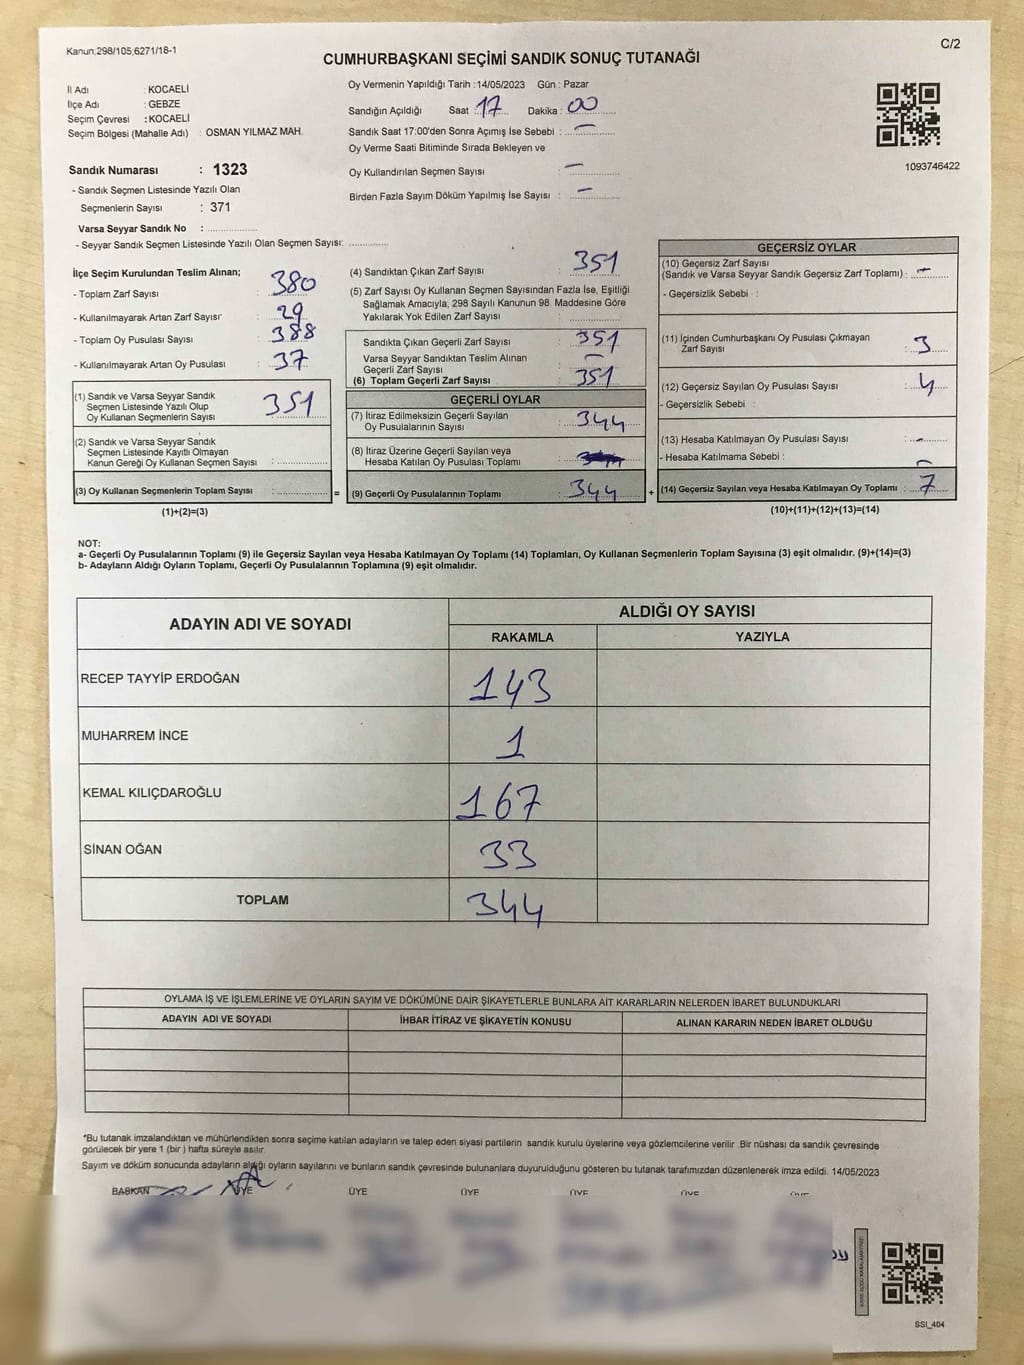 Kanun,298/105,6271/18-1
C/2
CUMHURBAŞKANI SEÇİMİ SANDIK SONUÇ TUTANAĞI
İl Adı : KOCAELİ
İlçe Adı : GEBZE
Seçim Çevresi : KOCAELİ
Seçim Bölgesi (Mahalle Adı) : OSMAN YILMAZ MAH.
Sandık Numarası : 1323
- Sandık Seçmen Listesinde Yazılı Olan
Seçmenlerin Sayısı : 371
Varsa Seyyar Sandık No :
- Seyyar Sandık Seçmen Listesinde Yazılı Olan Seçmen Sayısı:
Oy Vermenin Yapıldığı Tarih : 14/05/2023 Gün : Pazar
Sandığın Açıldığı Saat : 17 Dakika : 00
Sandık Saat 17:00'den Sonra Açımış İse Sebebi : —
Oy Verme Saati Bitiminde Sırada Bekleyen ve
Oy Kullandırılan Seçmen Sayısı : —
Birden Fazla Sayım Döküm Yapılmış İse Sayısı : —
1093746422
İlçe Seçim Kurulundan Teslim Alınan;
- Toplam Zarf Sayısı : 380
- Kullanılmayarak Artan Zarf Sayısı : 29
- Toplam Oy Pusulası Sayısı : 388
- Kullanılmayarak Artan Oy Pusulası : 37
(1) Sandık ve Varsa Seyyar Sandık
Seçmen Listesinde Yazılı Olup
Oy Kullanan Seçmenlerin Sayısı 351
(2) Sandık ve Varsa Seyyar Sandık
Seçmen Listesinde Kayıtlı Olmayan
Kanun Gereği Oy Kullanan Seçmen Sayısı :
(3) Oy Kullanan Seçmenlerin Toplam Sayısı :
(1)+(2)=(3)
(4) Sandıktan Çıkan Zarf Sayısı : 351
(5) Zarf Sayısı Oy Kullanan Seçmen Sayısından Fazla İse, Eşitliği
Sağlamak Amacıyla, 298 Sayılı Kanunun 98. Maddesine Göre
Yakılarak Yok Edilen Zarf Sayısı :
Sandıkta Çıkan Geçerli Zarf Sayısı : 351
Varsa Seyyar Sandıktan Teslim Alınan
Geçerli Zarf Sayısı : —
(6) Toplam Geçerli Zarf Sayısı : 351
GEÇERLİ OYLAR
(7) İtiraz Edilmeksizin Geçerli Sayılan
Oy Pusulalarının Sayısı : 344
(8) İtiraz Üzerine Geçerli Sayılan veya
Hesaba Katılan Oy Pusulası Toplamı :
= (9) Geçerli Oy Pusulalarının Toplamı : 344 +
GEÇERSİZ OYLAR
(10) Geçersiz Zarf Sayısı
(Sandık ve Varsa Seyyar Sandık Geçersiz Zarf Toplamı) : —
- Geçersizlik Sebebi :
(11) İçinden Cumhurbaşkanı Oy Pusulası Çıkmayan
Zarf Sayısı : 3
(12) Geçersiz Sayılan Oy Pusulası Sayısı : 4
- Geçersizlik Sebebi :
(13) Hesaba Katılmayan Oy Pusulası Sayısı : —
- Hesaba Katılmama Sebebi : —
(14) Geçersiz Sayılan veya Hesaba Katılmayan Oy Toplamı : 7
(10)+(11)+(12)+(13)=(14)
NOT:
a- Geçerli Oy Pusulalarının Toplamı (9) ile Geçersiz Sayılan veya Hesaba Katılmayan Oy Toplamı (14) Toplamları, Oy Kullanan Seçmenlerin Toplam Sayısına (3) eşit olmalıdır. (9)+(14)=(3)
b- Adayların Aldığı Oyların Toplamı, Geçerli Oy Pusulalarının Toplamına (9) eşit olmalıdır.
ADAYIN ADI VE SOYADI
ALDIĞI OY SAYISI
RAKAMLA YAZIYLA
RECEP TAYYİP ERDOĞAN 143
MUHARREM İNCE 1
KEMAL KILIÇDAROĞLU 167
SİNAN OĞAN 33
TOPLAM 344
OYLAMA İŞ VE İŞLEMLERİNE VE OYLARIN SAYIM VE DÖKÜMÜNE DAİR ŞİKAYETLERLE BUNLARA AİT KARARLARIN NELERDEN İBARET BULUNDUKLARI
ADAYIN ADI VE SOYADI İHBAR İTİRAZ VE ŞİKAYETİN KONUSU ALINAN KARARIN NEDEN İBARET OLDUĞU
*Bu tutanak imzalandıktan ve mühürlendikten sonra seçime katılan adayların ve talep eden siyasi partilerin sandık kurulu üyelerine veya gözlemcilerine verilir. Bir nüshası da sandık çevresinde
görülecek bir yere 1 (bir ) hafta süreyle asılır.
Sayım ve döküm sonucunda adayların aldığı oyların sayılarını ve bunların sandık çevresinde bulunanlara duyurulduğunu gösteren bu tutanak tarafımızdan düzenlenerek imza edildi. 14/05/2023
BAŞKAN ÜYE ÜYE ÜYE ÜYE ÜYE ÜYE
SSI_404